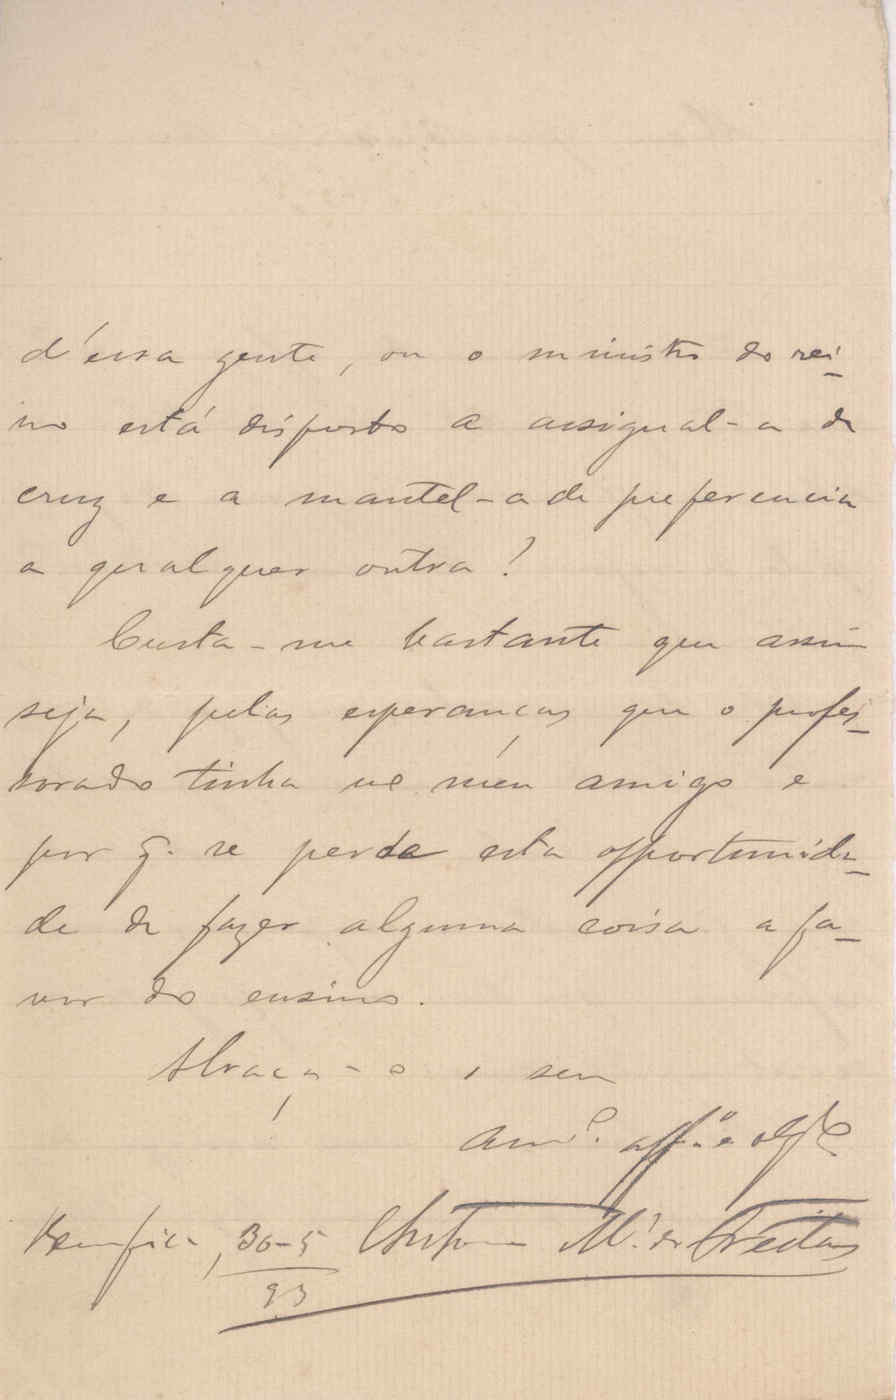 d'essa gente, ou o ministro do rei-
no está disposto a assignal-a de
cruz e a mantel-a de preferencia
a qualquer outra?
Custa-me bastante que assim
seja, pelas esperanças que o profes-
sorado tinha no meu amigo e
por q. se perde esta opportunida-
de de fazer alguma coisa a fa-
vor do ensino.
Abraça-o o seu
am.º aff.º e obg.º
Bemfica, 30-5 M.ª de Freitas
93